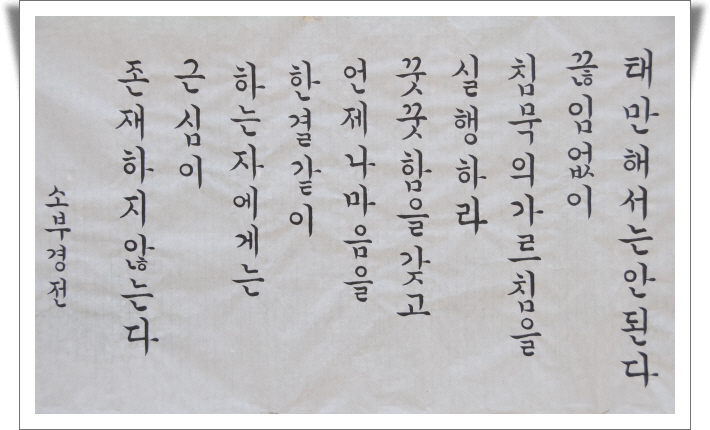 태만해서는안된다
끊임없이
침묵의가르침을
실행하라
꿋꿋함을갖고
언제나마음을
한결같이
하는자에게는
근심이
존재하지않는다
소부경전